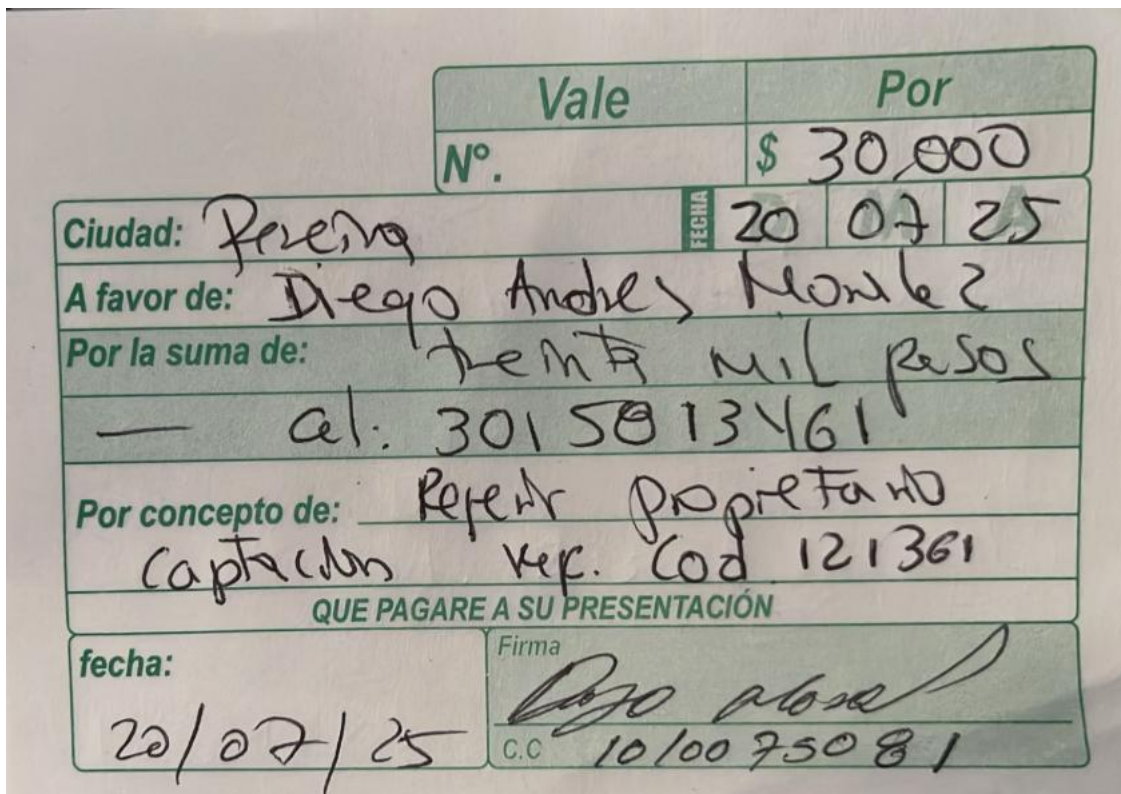 Vale Por
Nº. $ 30,000
Ciudad: Pereira FECHA 20 07 25
A favor de: Diego Andres Montez
Por la suma de: treinta mil pesos
— Cel: 3015813461
Por concepto de: Referir propietario
Captación Ref. Cod 121361
QUE PAGARE A SU PRESENTACIÓN
fecha: Firma
20/07/25
C.C 1010075081